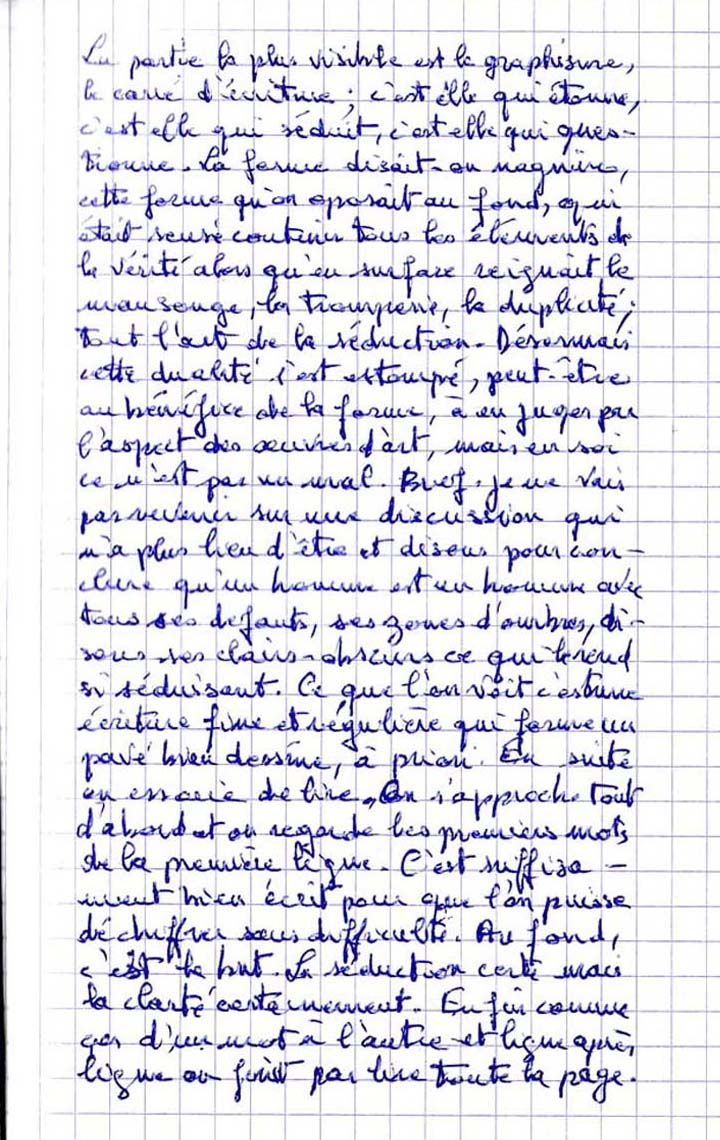 La partie la plus visible est le graphisme,
le carré d'écriture ; c'est elle qui étonne,
c'est elle qui séduit, c'est elle qui ques-
tionne. La forme disait-on naguère,
cette forme qu'on oposait au fond, qui
était sensé contenir tous les éléments de
la vérité alors qu'en surface reignait le
mensonge, la tromperie, la duplicité ;
tout l'art de la séduction. Désormais
cette dualité s'est estompé, peut-être
au bénéfice de la forme, à en juger par
l'aspect des œuvres d'art, mais en soi
ce n'est pas un mal. Bref. je ne vais
pas revenir sur une discussion qui
n'a plus lieu d'être et disons pour con-
clure qu'un homme est un homme avec
tous ses defauts, ses zones d'ombres, di-
sons ses clairs-obscurs ce qui le rend
si séduisant. Ce que l'on voit c'est une
écriture fine et régulière qui forme un
pavé bien dessiné, à priori. En suite
on essaie de lire. On s'approche tout
d'abord et on regarde les premiers mots
de la première ligne. C'est suffisa-
ment bien écrit pour que l'on puisse
déchiffrer sans difficulté. Au fond,
c'est le but. La séduction certe mais
la clarté certainement. En fin comme
ça d'un mot à l'autre et ligne après
ligne on finit par lire toute la page.